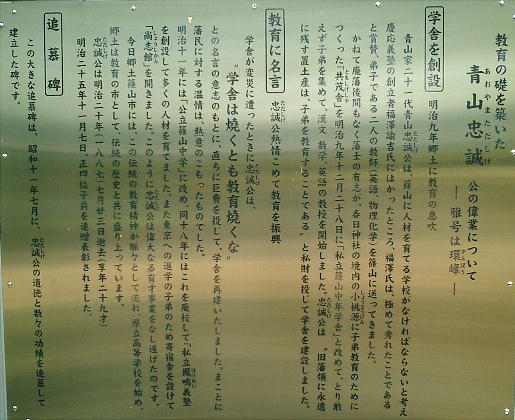 教育の礎を築いた
青山忠誠 公の偉業について
あおやまただしげ
― 雅号は環峰 ―
かんぽう
学舎を創設 明治九年郷土に教育の息吹
青山家二十一代青山忠誠公は、篠山に人材を育てる学校がなければならないと考え
慶応義塾の創立者福澤諭吉氏にはかったところ、福澤氏は、極めて秀れたことである
と賞賛、弟子である二人の教師(英語、物理化学)を篠山に送ってきました。
かねて廃藩後間もなく藩士の有志が、春日神社の境内の小桃源に子弟教育のために
つくった「共茂舎」を明治九年十二月二十八日に「私立篠山中年学舎」と改めて、とり敢
えず子弟を集めて、漢文、数学、英語の教授を開始しました。忠誠公は〝旧藩領に永遠
に残す置土産は、子弟を教育することである〟と私財を投じて学舎を建設しました。
教育に名言 忠誠公熱情こめて教育を振興
学舎が火災に遭ったときに忠誠公は、
〝学舎は焼くとも教育焼くな〟
との名言の意志のもとに、直ちに巨費を投じて、学舎を再建いたしました。まことに
藩民に対する温情は、熱意のこもったものでした。
明治十一年には「公立篠山中学」に改め、同十八年にはこれを廃校して「私立鳳鳴義塾
を創設して多くの人材を育てました。また東京への進学の子弟のため寄宿舎を設けて
「尚志館」を開きました。このように忠誠公は偉大なる育才事業をなし遂げたのです。
今日郷土篠山市には、この伝統的教育精神が脈々として流れ、県立高等学校を始め、
郷土は教育の市として、伝統の歴史と共に盛り上っています。
忠誠公は明治二十年(一八八七)七月廿三日逝去(享年二十九才)
明治二十五年十一月七日、正四位子爵を追贈表彰されました。
追慕碑
この大きな追慕碑は、昭和十一年七月に、忠誠公の遺徳と数々の功績を追慕して
建立した碑です。